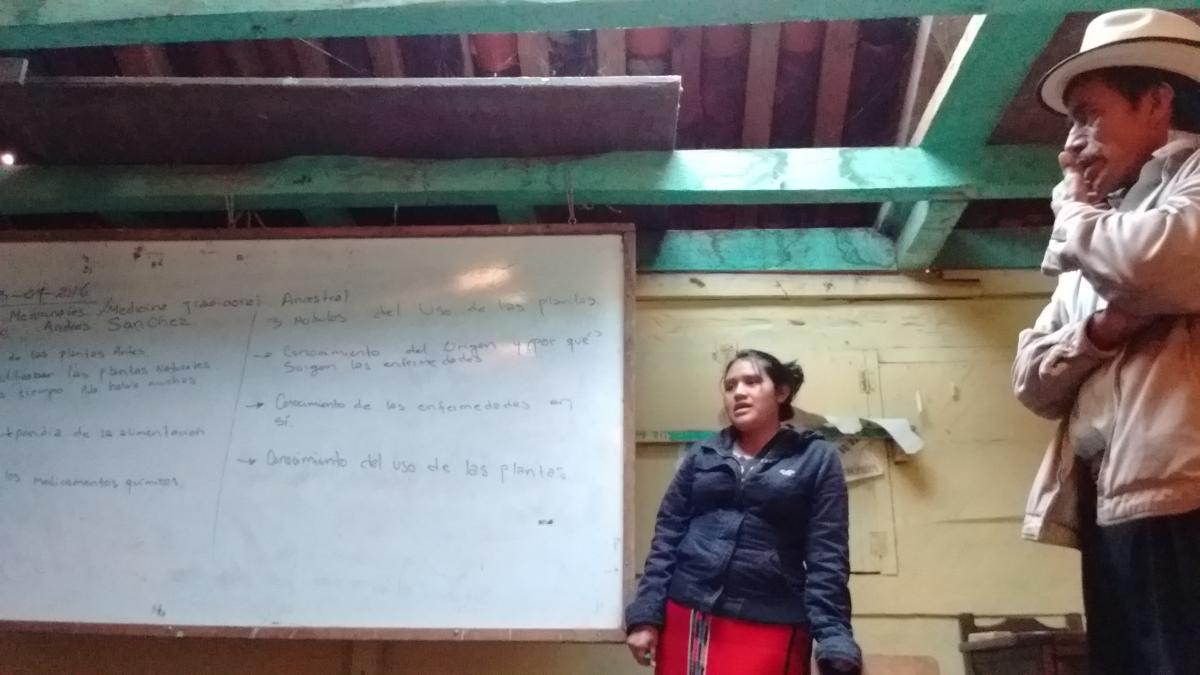 -04-2016
Medicinales /Medicina Tradicional Ancestral
Andres Sanchez
de las plantas Antes
utilizaban las plantas Naturales
tiempo No habia muchas
dependia de la alimentacion
los medicamentos quimicos.
3 Modulos del Uso de las plantas.
→ Conocimiento del Origen y por que
Surgen las enfermedades
→ Conocimiento de las enfermedades en
sí.
→ Conocimiento del uso de las plantas